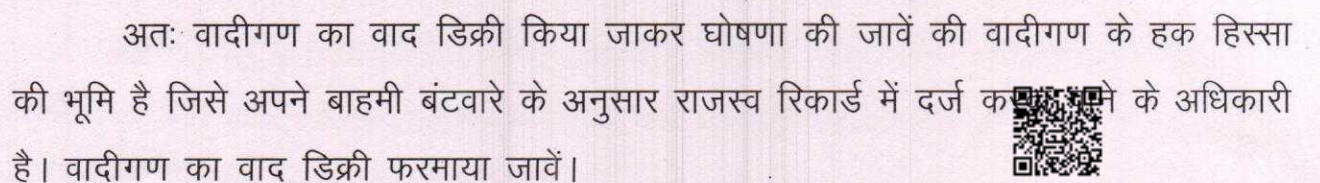 अतः वादीगण का वाद डिक्री किया जाकर घोषणा की जावें की वादीगण के हक हिस्सा
की भूमि है जिसे अपने बाहमी बंटवारे के अनुसार राजस्व रिकार्ड में दर्ज के अधिकारी
है। वादीगण का वाद डिक्री फरमाया जावें।